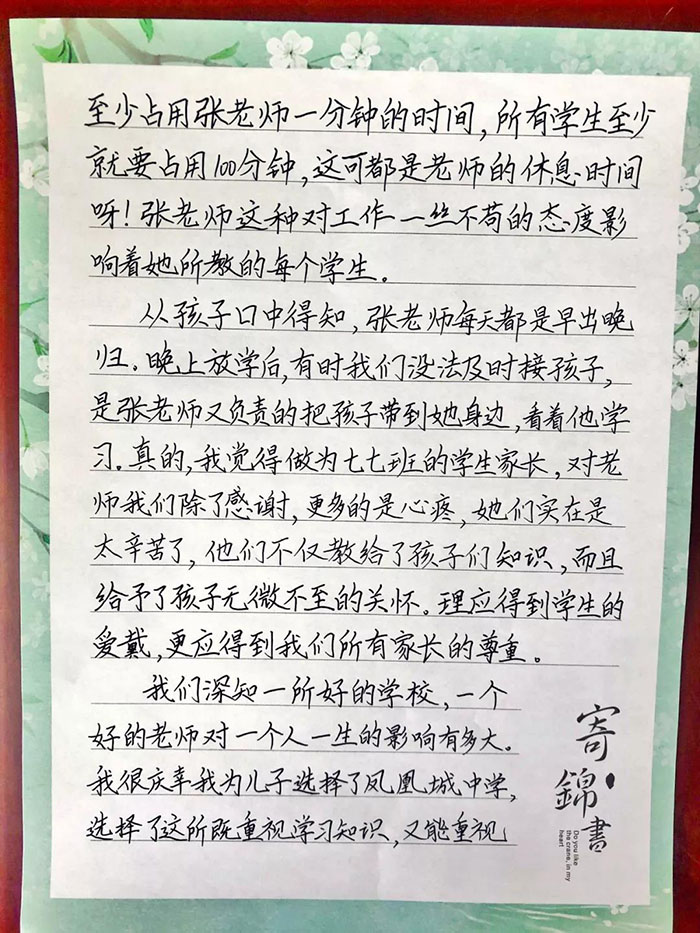 至少占用张老师一分钟的时间，所有学生至少
就要占用100分钟，这可都是老师的休息时间
呀！张老师这种对工作一丝不苟的态度影
响着她所教的每个学生。
从孩子口中得知，张老师每天都是早出晚
归。晚上放学后，有时我们没法及时接孩子，
是张老师又负责的把孩子带到她身边，看着他学
习。真的，我觉得做为七七班的学生家长，对老
师我们除了感谢，更多的是心疼，她们实在是
太辛苦了，他们不仅教给了孩子们知识，而且
给予了孩子无微不至的关怀。理应得到学生的
爱戴，更应得到我们所有家长的尊重。
我们深知一所好的学校，一个
好的老师对一个人一生的影响有多大。
我很庆幸我为儿子选择了凤凰城中学，
选择了这所既重视学习知识，又能重视
寄锦書
Do you like
the crane, in my
heart